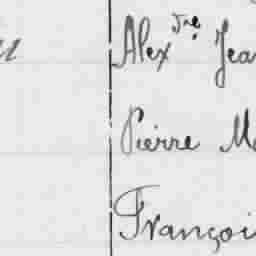 Alex dre Jea
Pierre M
Françoi